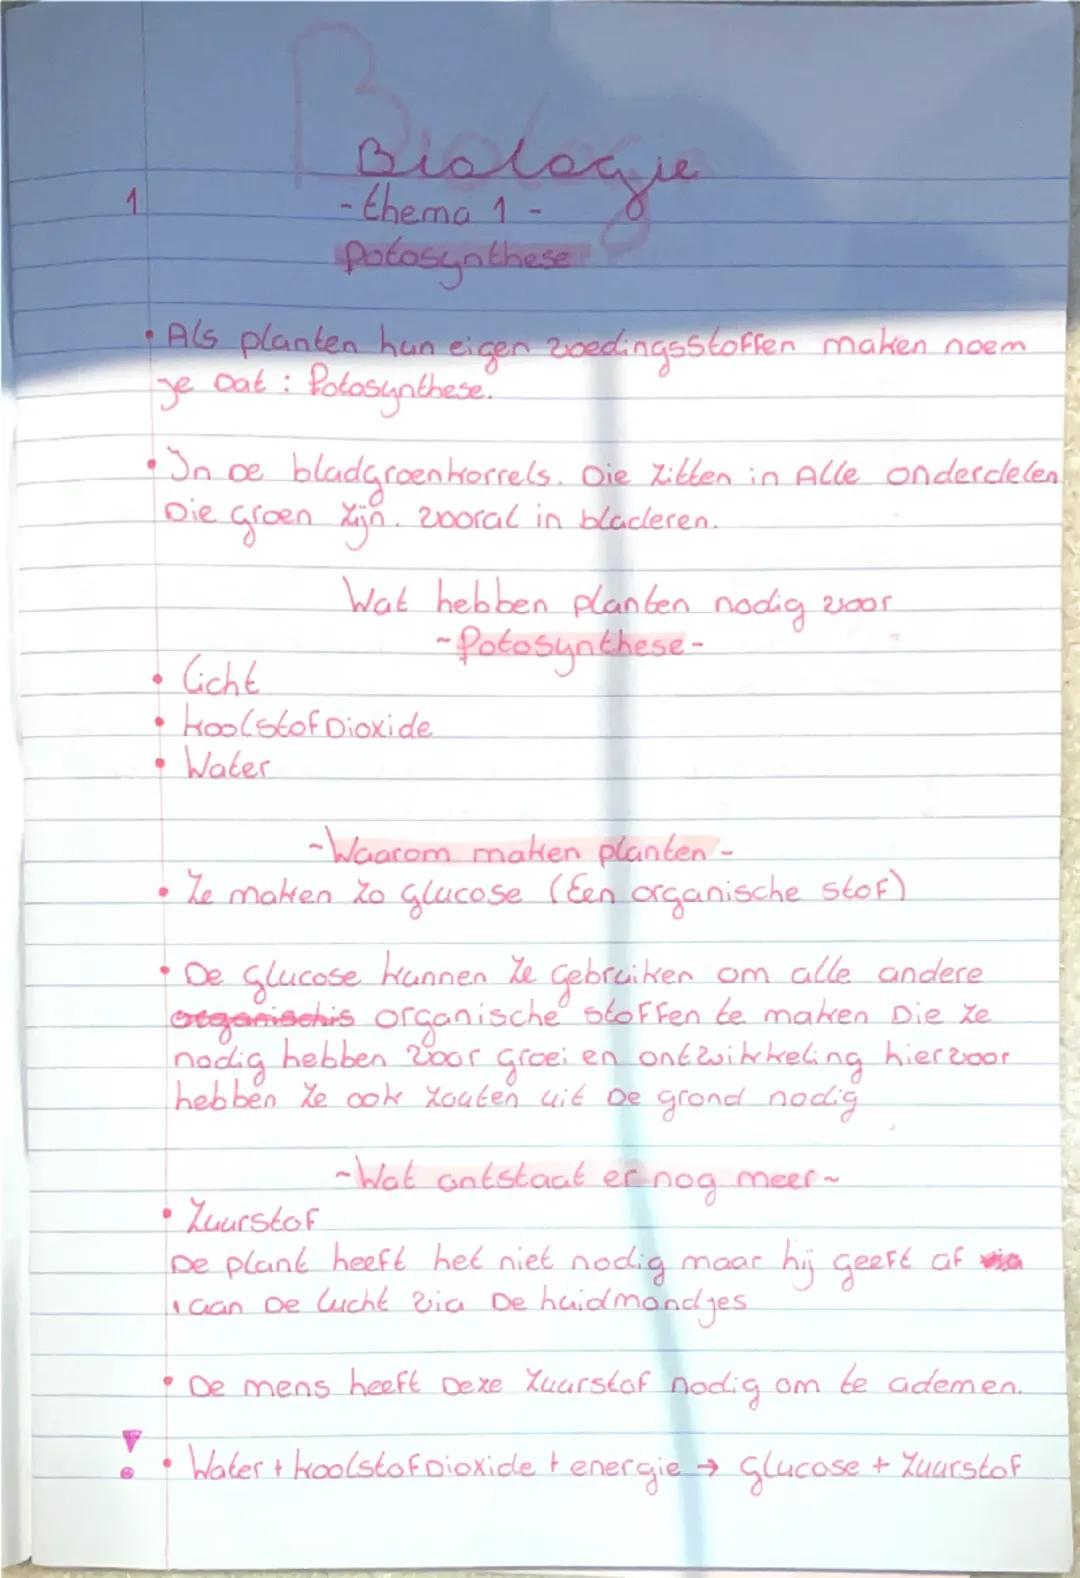 Biologie
1
- thema 1 -
Potosynthese
• Als planten hun eigen voedingsstoffen maken noem
je Dat : Potosynthese.
• In De bladgroenkorrels. Die zitten in Alle onderdelen
Die groen zijn. vooral in bladeren.
Wat hebben planten nodig voor
~Potosynthese-
• Licht
• koolstofDioxide
• Water
~Waarom maken planten-
• Ze maken zo glucose (Een organische stof)
• De glucose kunnen ze gebruiken om alle andere
organische stoffen te maken Die ze
nodig hebben voor groei en ontwikkeling hiervoor
hebben ze ook zouten uit De grond nodig
~Wat ontstaat er nog meer~
• Zuurstof
De plant heeft het niet nodig maar hij geeft af
aan De lucht via De huidmondjes
• De mens heeft Deze zuurstof nodig om te ademen.
! • Water + koolstofDioxide + energie → glucose + zuurstof